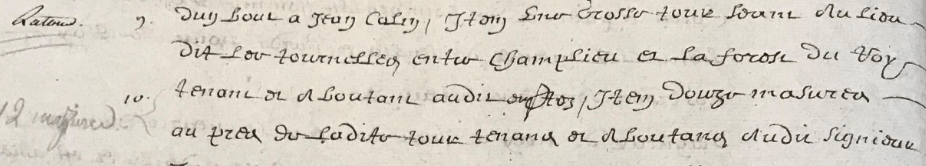 9. Dun bout a Jean Calin, Item Une Grosse tour seant Au lieu
dit les tournelles entre Champlieu et la forest du Roy
10. tenant et Aboutant audit Item Douze masures
12 masures.
au pres de ladite tour tenans et Aboutans Audit Signieur